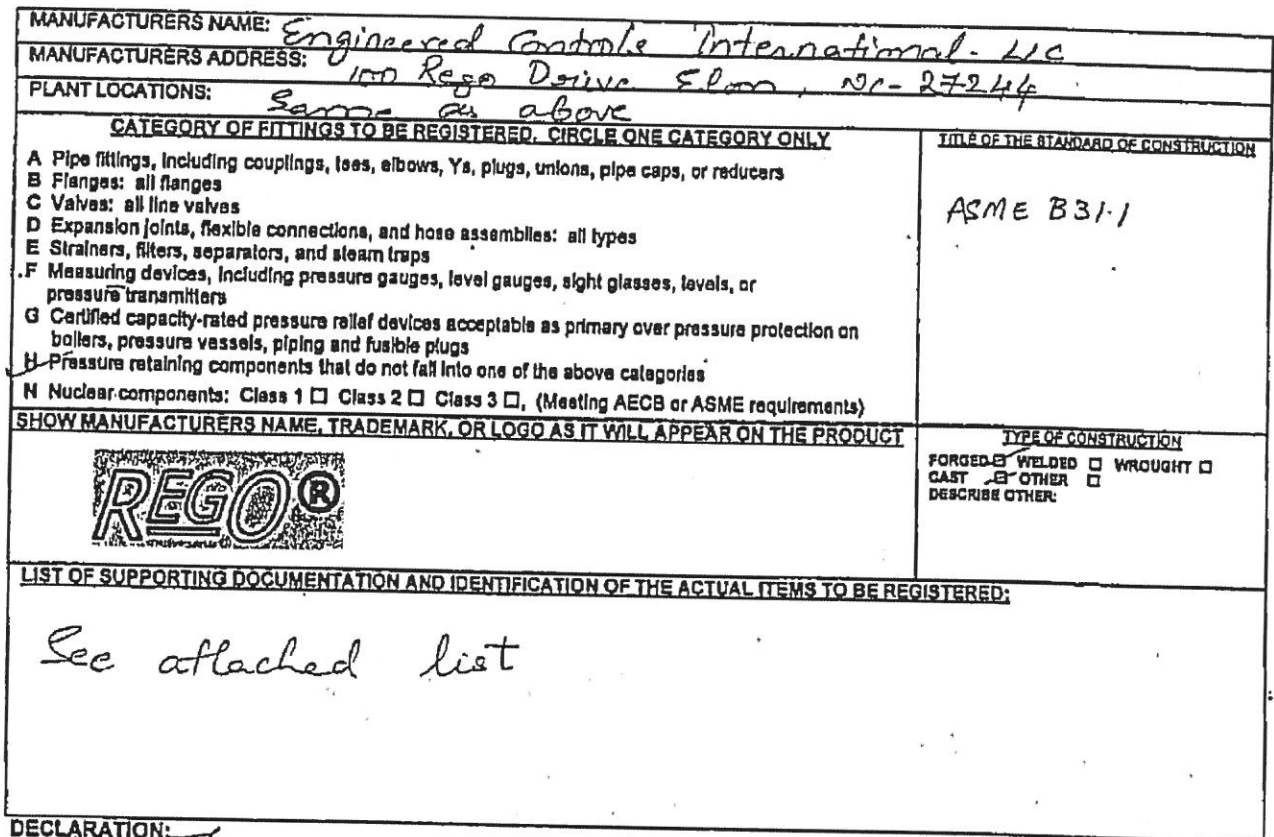 MANUFACTURERS NAME: Engineered Controls International - LLC
MANUFACTURERS ADDRESS: 100 Rego Drive Elon, NC - 27244
PLANT LOCATIONS: Same as above
CATEGORY OF FITTINGS TO BE REGISTERED. CIRCLE ONE CATEGORY ONLY
A Pipe fittings, including couplings, tees, elbows, Ys, plugs, unions, pipe caps, or reducers
B Flanges: all flanges
C Valves: all line valves
D Expansion joints, flexible connections, and hose assemblies: all types
E Strainers, filters, separators, and steam traps
F Measuring devices, including pressure gauges, level gauges, sight glasses, levels, or
pressure transmitters
G Certified capacity-rated pressure relief devices acceptable as primary over pressure protection on
boilers, pressure vessels, piping and fusible plugs
H Pressure retaining components that do not fall into one of the above categories
N Nuclear components: Class 1 ☐ Class 2 ☐ Class 3 ☐, (Meeting AECB or ASME requirements)
TITLE OF THE STANDARD OF CONSTRUCTION
ASME B31.1
SHOW MANUFACTURERS NAME, TRADEMARK, OR LOGO AS IT WILL APPEAR ON THE PRODUCT
REGO®
TYPE OF CONSTRUCTION
FORGED ☑ WELDED ☐ WROUGHT ☐
CAST ☑ OTHER ☐
DESCRIBE OTHER:
LIST OF SUPPORTING DOCUMENTATION AND IDENTIFICATION OF THE ACTUAL ITEMS TO BE REGISTERED:
See attached list
DECLARATION: